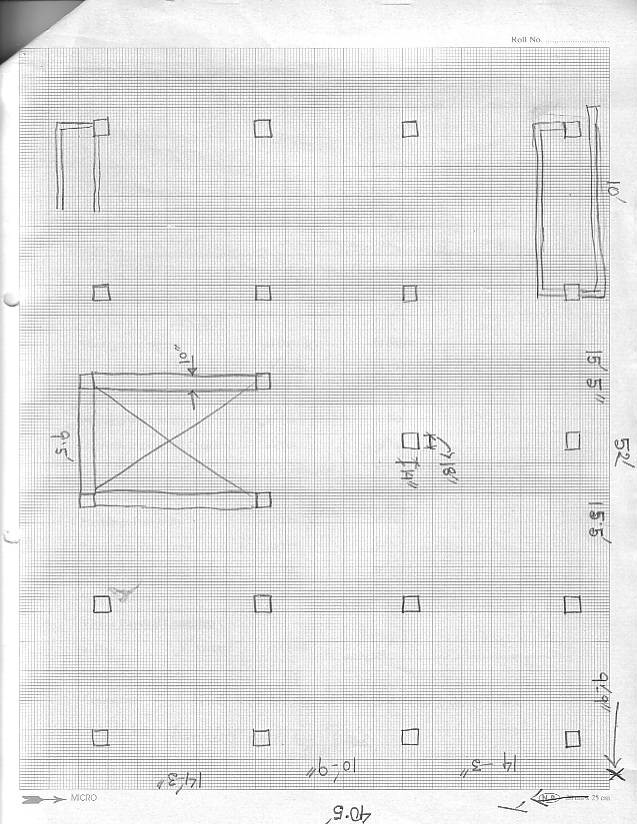 Roll No.
10'
15' 5"
52'
15.5'
9'.9"
10"
9.5'
18"
14"
14'-3"
10'-9"
14-3"
40.5'
X
Y
MICRO
25 cm